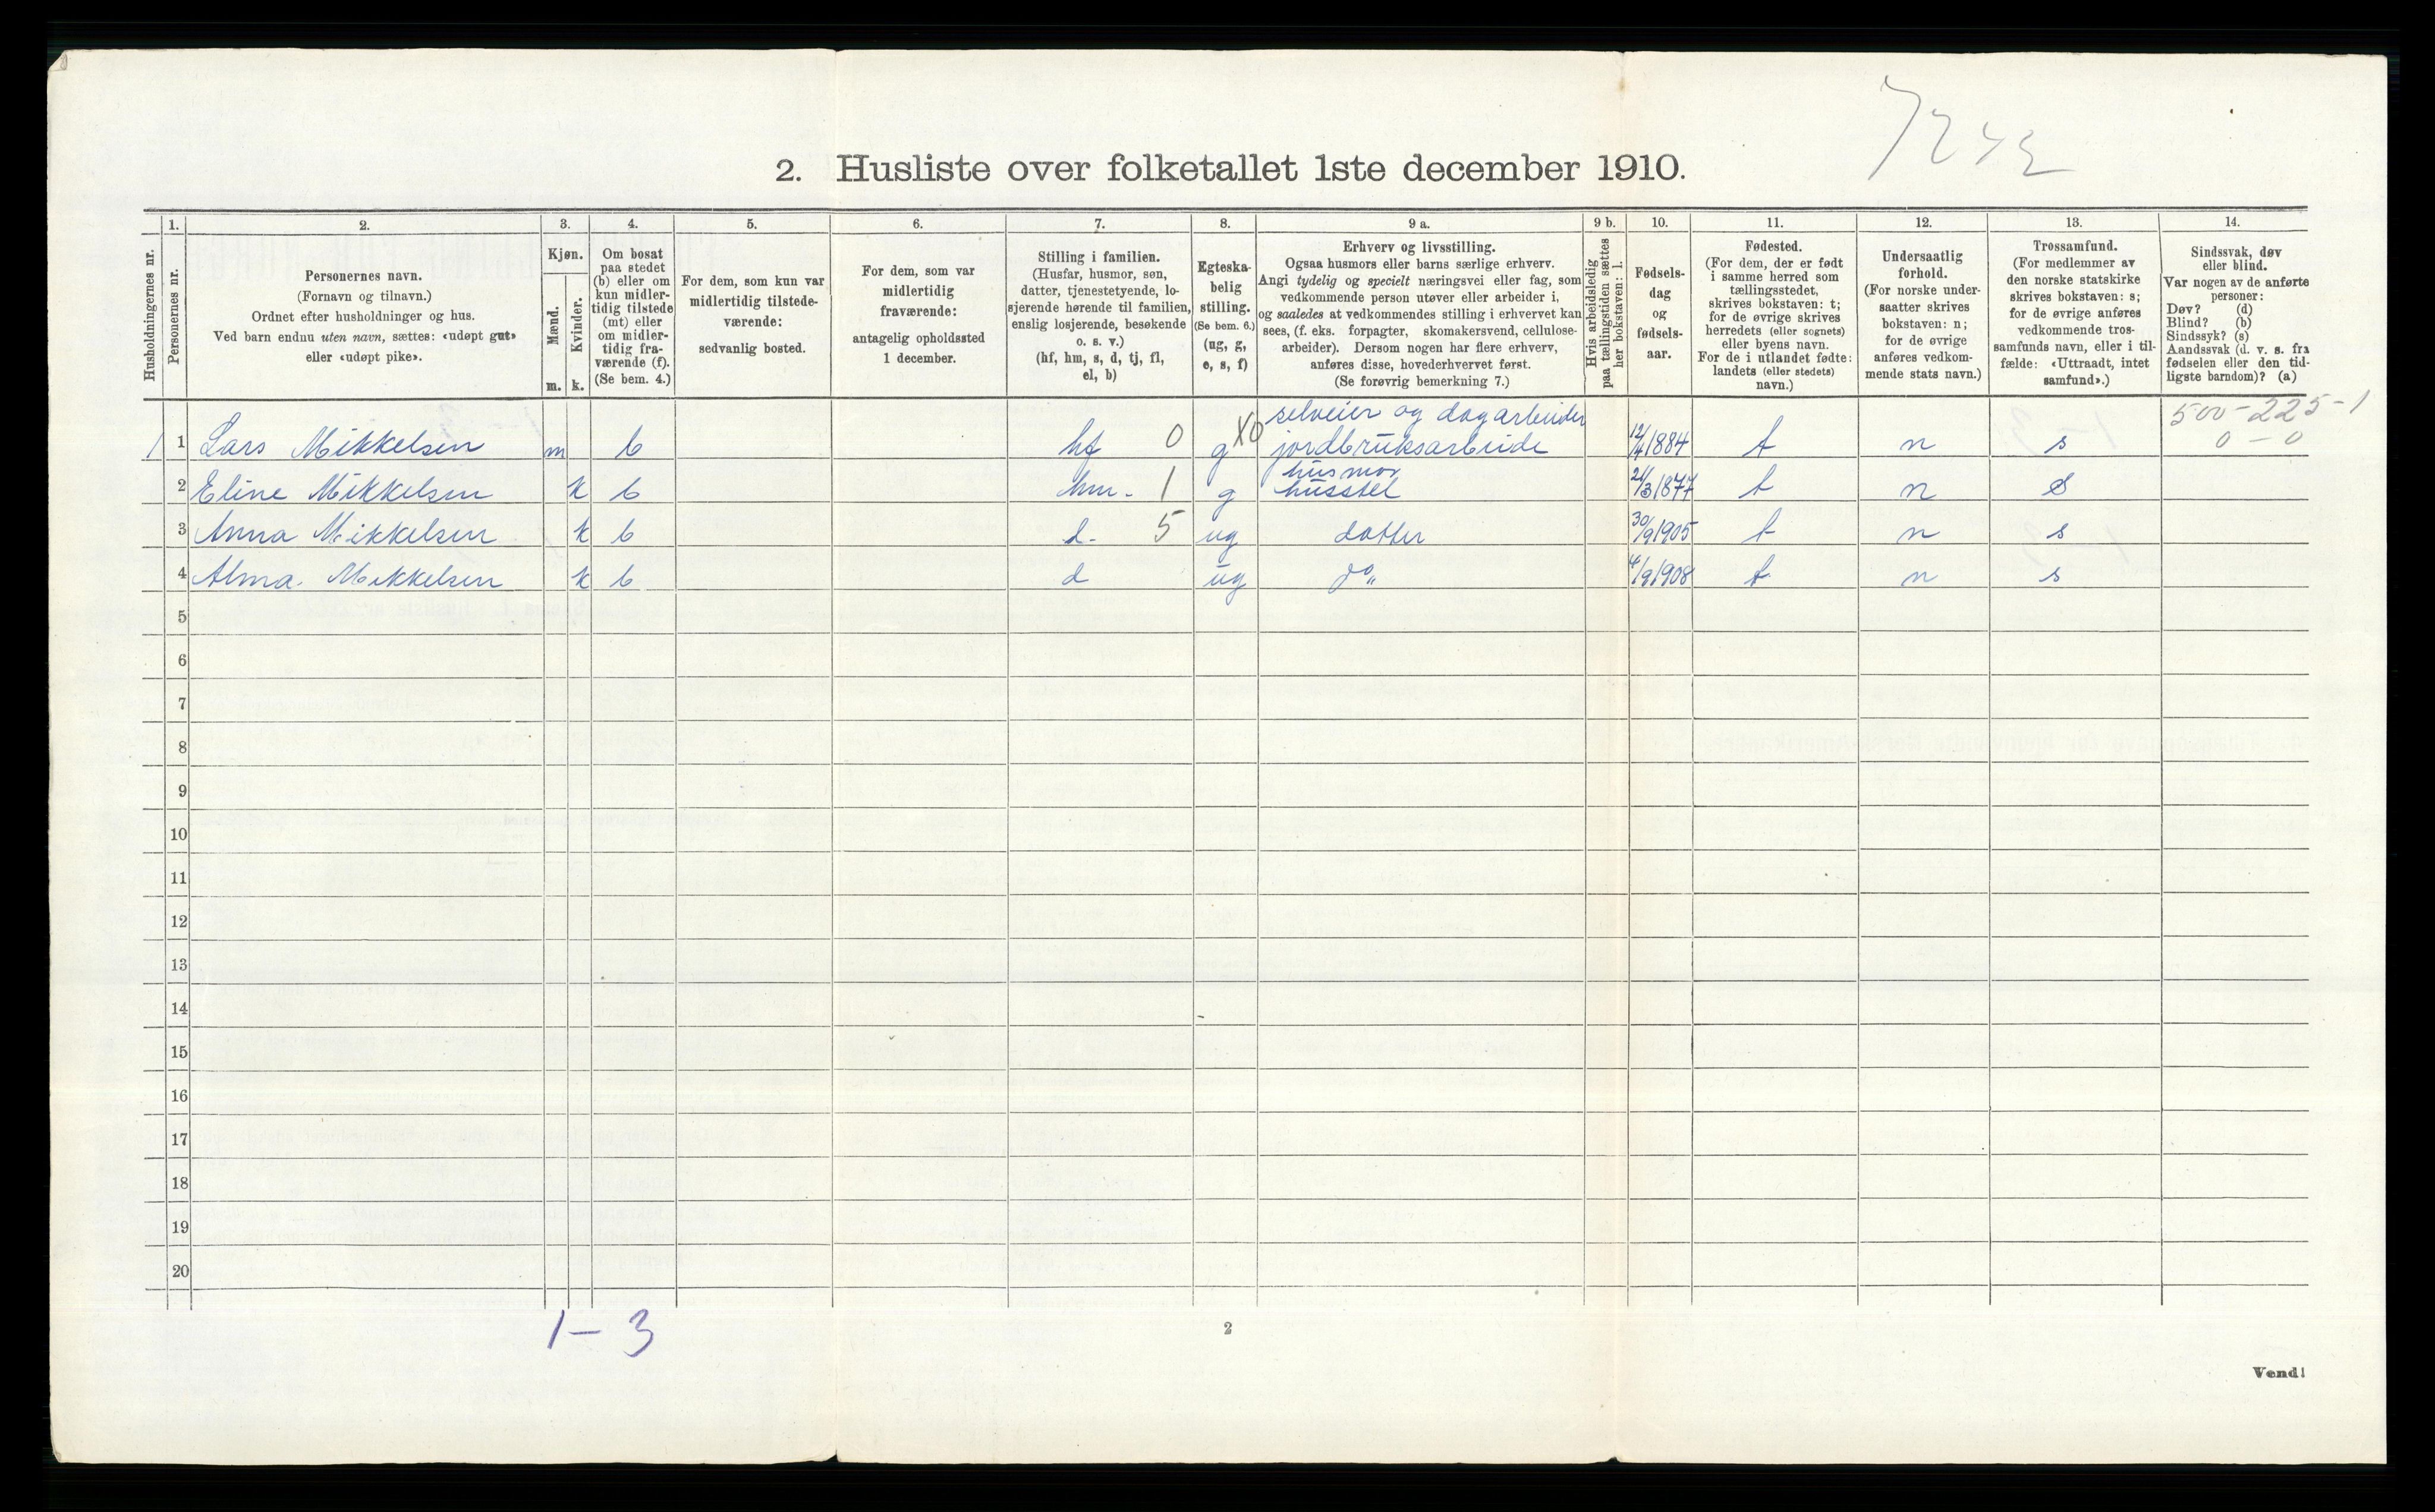 7242
2. Husliste over folketallet 1ste december 1910.
1. 2. 3. 4. 5. 6. 7. 8. 9 a. 9 b. 10. 11. 12. 13. 14.
Husholdningernes nr.
Personernes nr.
Personernes navn.
(Fornavn og tilnavn.)
Ordnet efter husholdninger og hus.
Ved barn endnu uten navn, sættes: «udøpt gut»
eller «udøpt pike».
Kjøn.
Mænd.
m.
Kvinder.
k.
Om bosat
paa stedet
(b) eller om
kun midler-
tidig tilstede
(mt) eller
om midler-
tidig fra-
værende (f).
(Se bem. 4.)
For dem, som kun var
midlertidig tilstede-
værende:
sedvanlig bosted.
For dem, som var
midlertidig
fraværende:
antagelig opholdssted
1 december.
Stilling i familien.
(Husfar, husmor, søn,
datter, tjenestetyende, lo-
sjerende hørende til familien,
enslig losjerende, besøkende
o. s. v.)
(hf, hm, s, d, tj, fl,
el, b)
Egteska-
belig
stilling.
(Se bem. 6.)
(ug, g,
e, s, f)
Erhverv og livsstilling.
Ogsaa husmors eller barns særlige erhverv.
Angi tydelig og specielt næringsvei eller fag, som
vedkommende person utøver eller arbeider i,
og saaledes at vedkommendes stilling i erhvervet kan
sees, (f. eks. forpagter, skomakersvend, cellulose-
arbeider). Dersom nogen har flere erhverv,
anføres disse, hovederhvervet først.
(Se forøvrig bemerkning 7.)
Hvis arbeidsledig
paa tællingstiden sættes
her bokstaven: l.
Fødsels-
dag
og
fødsels-
aar.
Fødested.
(For dem, der er født
i samme herred som
tællingsstedet,
skrives bokstaven: t;
for de øvrige skrives
herredets (eller sognets)
eller byens navn.
For de i utlandet fødte:
landets (eller stedets)
navn.)
Undersaatlig
forhold.
(For norske under-
saatter skrives
bokstaven: n;
for de øvrige
anføres vedkom-
mende stats navn.)
Trossamfund.
(For medlemmer av
den norske statskirke
skrives bokstaven: s;
for de øvrige anføres
vedkommende tros-
samfunds navn, eller i til-
fælde: «Uttraadt, intet
samfund».)
Sindssvak, døv
eller blind.
Var nogen av de anførte
personer:
Døv? (d)
Blind? (b)
Sindssyk? (s)
Aandssvak (d. v. s. fra
fødselen eller den tid-
ligste barndom)? (a)
selveier og dagarbeider 500-225-1
1 1 Lars Mikkelsen m b hf 0 g X0 jordbruksarbeide 12/4 1884 t n s 0-0
husmor
2 Eline Mikkelsen k b hm. 1 g husstel 21/3 1877 t n s
3 Anna Mikkelsen k b d. 5 ug datter 30/9 1905 t n s
4 Alma Mikkelsen k b d ug do„ 4/9 1908 t n s
5
6
7
8
9
10
11
12
13
14
15
16
17
18
19
20
1-3
2
Vend!